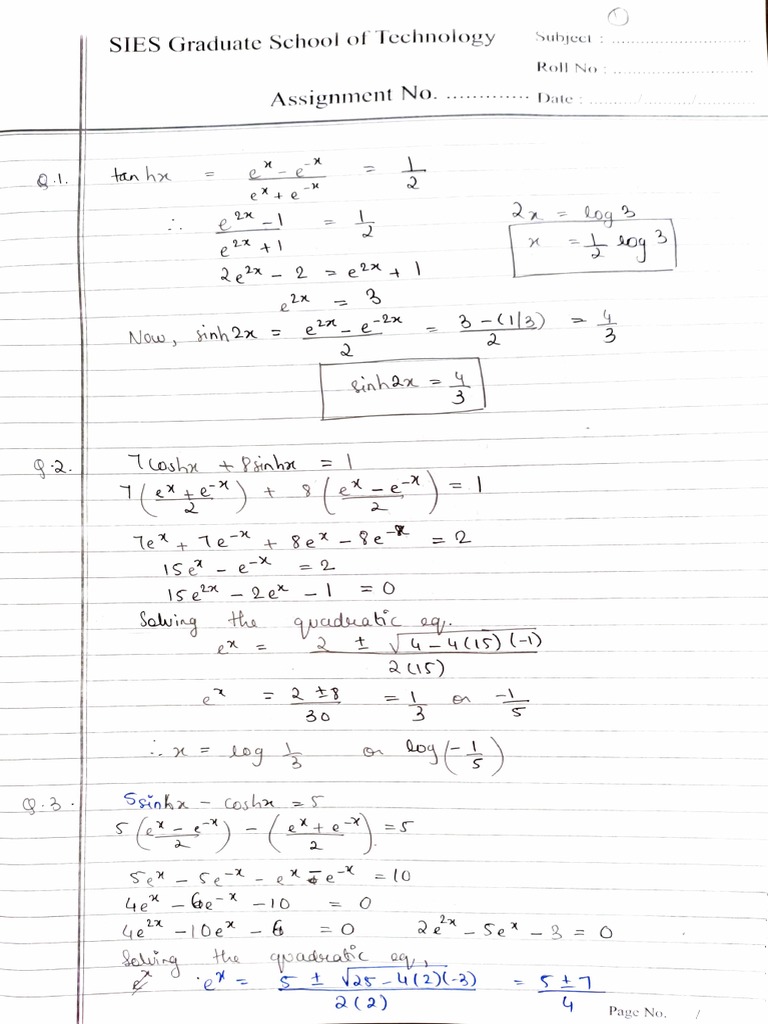 1
SIES Graduate School of Technology
Subject : ..............................
Roll No : ..............................
Assignment No. ............. Date : ........../........../..........
Q.1. tanhx = (e^x − e^-x)/(e^x + e^-x) = 1/2
∴ (e^2x − 1)/(e^2x + 1) = 1/2
2x = log 3
2e^2x − 2 = e^2x + 1
x = 1/2 log 3
e^2x = 3
Now, sinh2x = (e^2x − e^-2x)/2 = (3 − (1/3))/2 = 4/3
sinh2x = 4/3
Q.2. 7coshx + 8sinhx = 1
7((e^x + e^-x)/2) + 8((e^x − e^-x)/2) = 1
7e^x + 7e^-x + 8e^x − 8e^-x = 2
15e^x − e^-x = 2
15e^2x − 2e^x − 1 = 0
Solving the quadratic eq.
e^x = (2 ± √(4 − 4(15)(−1)))/(2(15))
e^x = (2 ± 8)/30 = 1/3 or −1/5
∴ x = log 1/3 or log(−1/5)
Q.3. 5sinhx − coshx = 5
5((e^x − e^-x)/2) − ((e^x + e^-x)/2) = 5
5e^x − 5e^-x − e^x − e^-x = 10
4e^x − 6e^-x − 10 = 0
4e^2x − 10e^x − 6 = 0 2e^2x − 5e^x − 3 = 0
Solving the quadratic eq,
e^x = (5 ± √(25 − 4(2)(−3)))/(2(2)) = (5 ± 7)/4
Page No. /